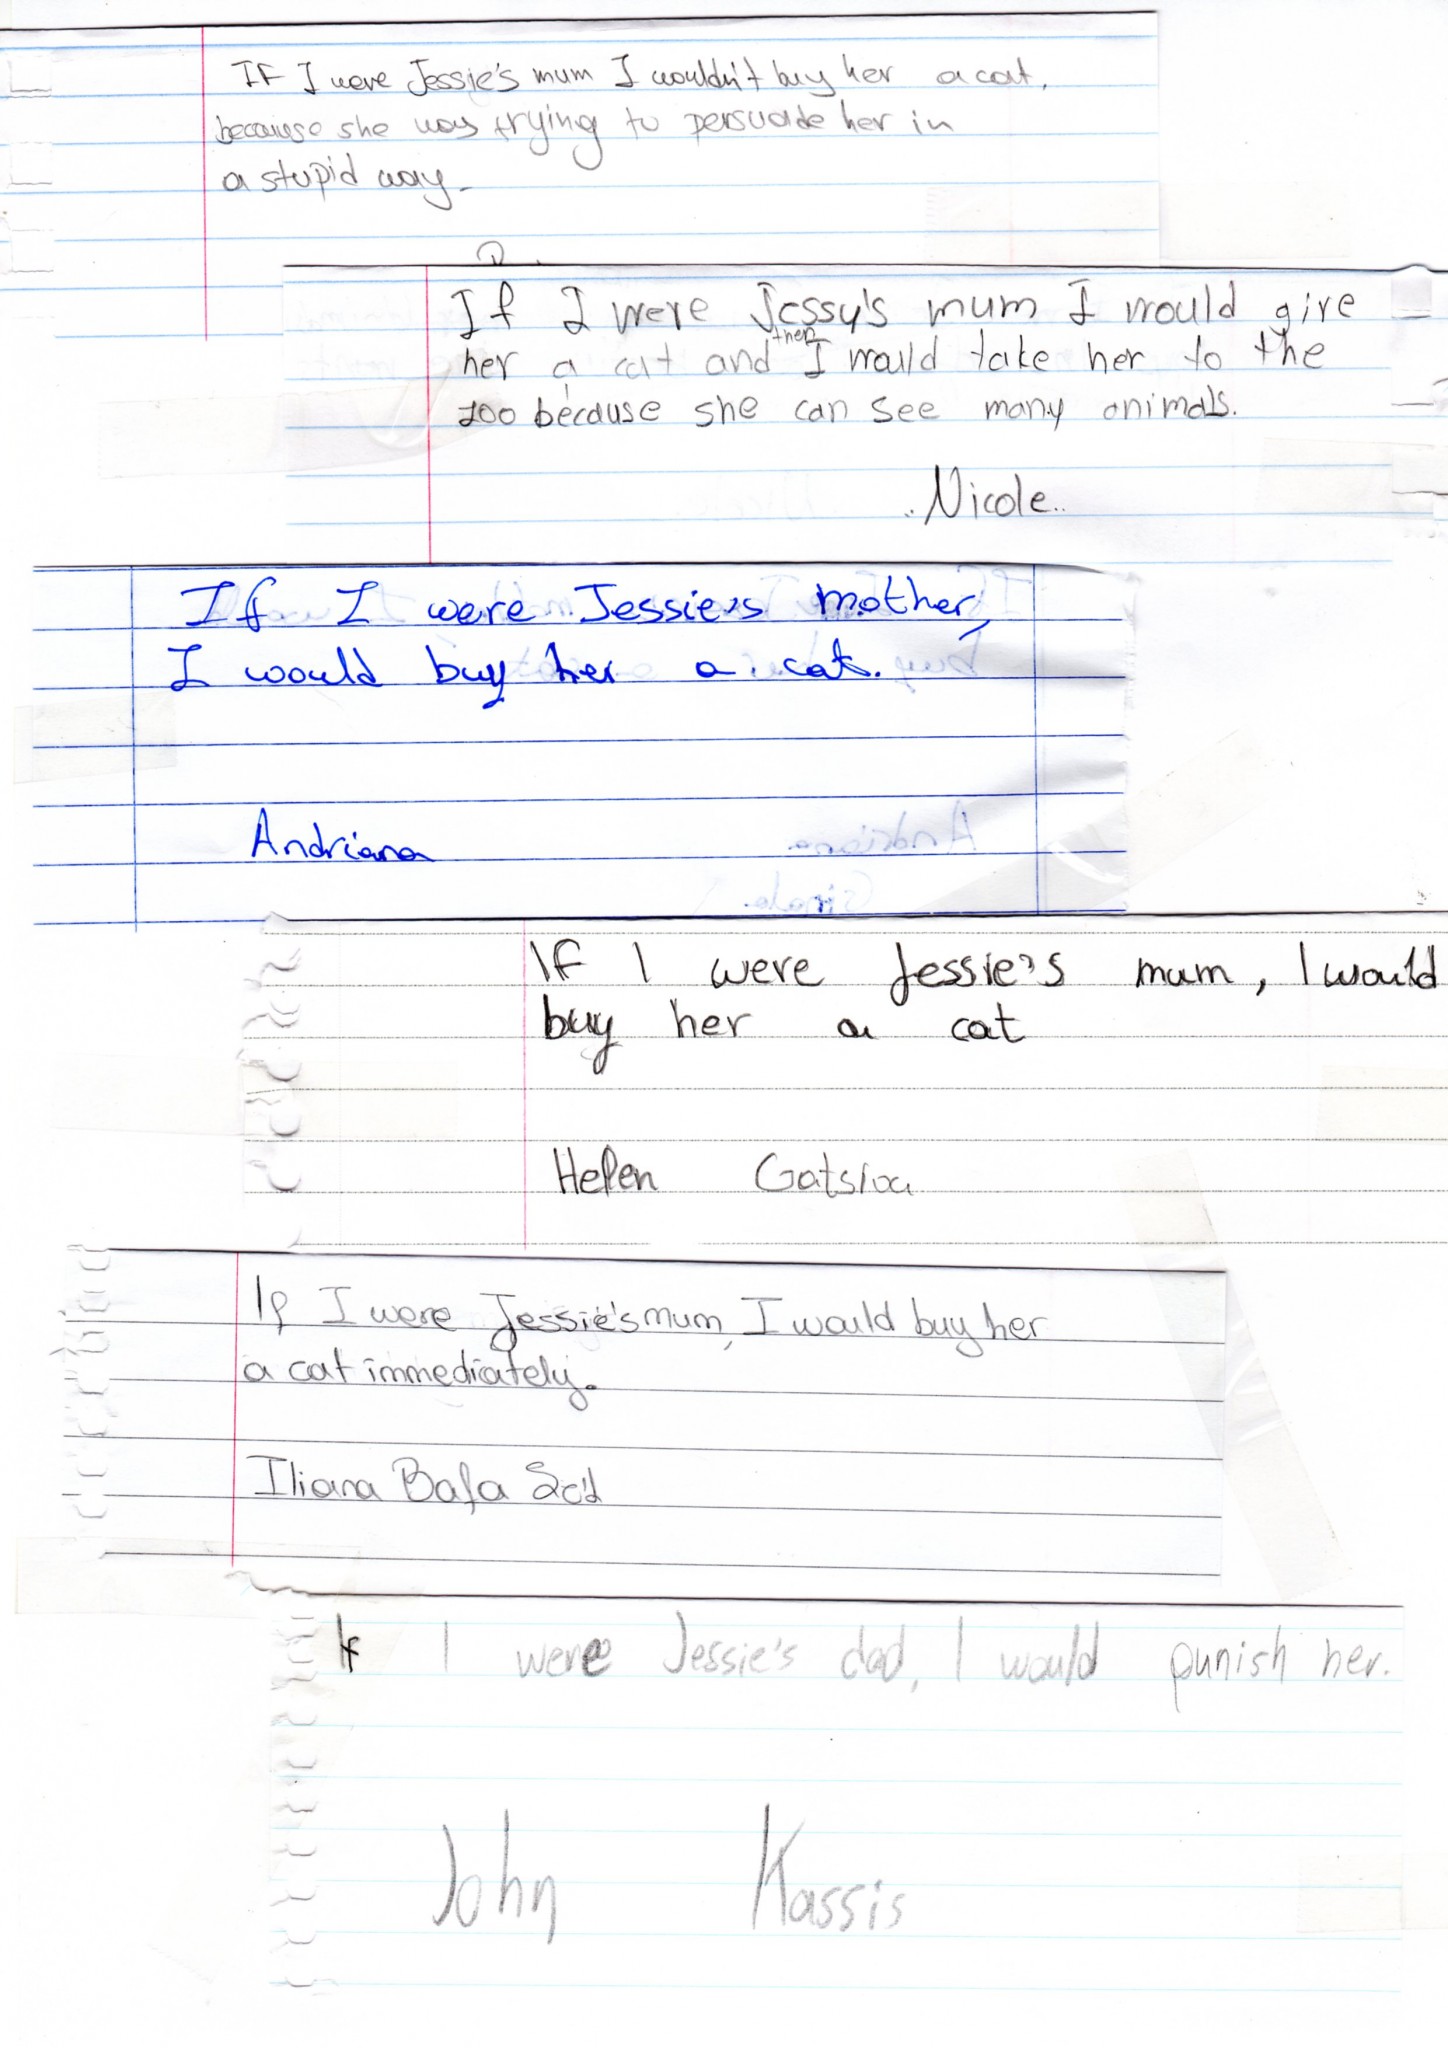 IF I were Jessie's mum I wouldn't buy her a cat,
because she was trying to persuade her in
a stupid way.
If I were Jessy's mum I would give
her a cat and then I would take her to the
zoo because she can see many animals.
Nicole
If I were Jessie's mother,
I would buy her a cat.
Andriana
IF I were Jessie's mum, I would
buy her a cat
Helen Gatsiou
If I were Jessie's mum, I would buy her
a cat immediately.
Iliana Bafa
If I were Jessie's dad, I would punish her.
John Kassis